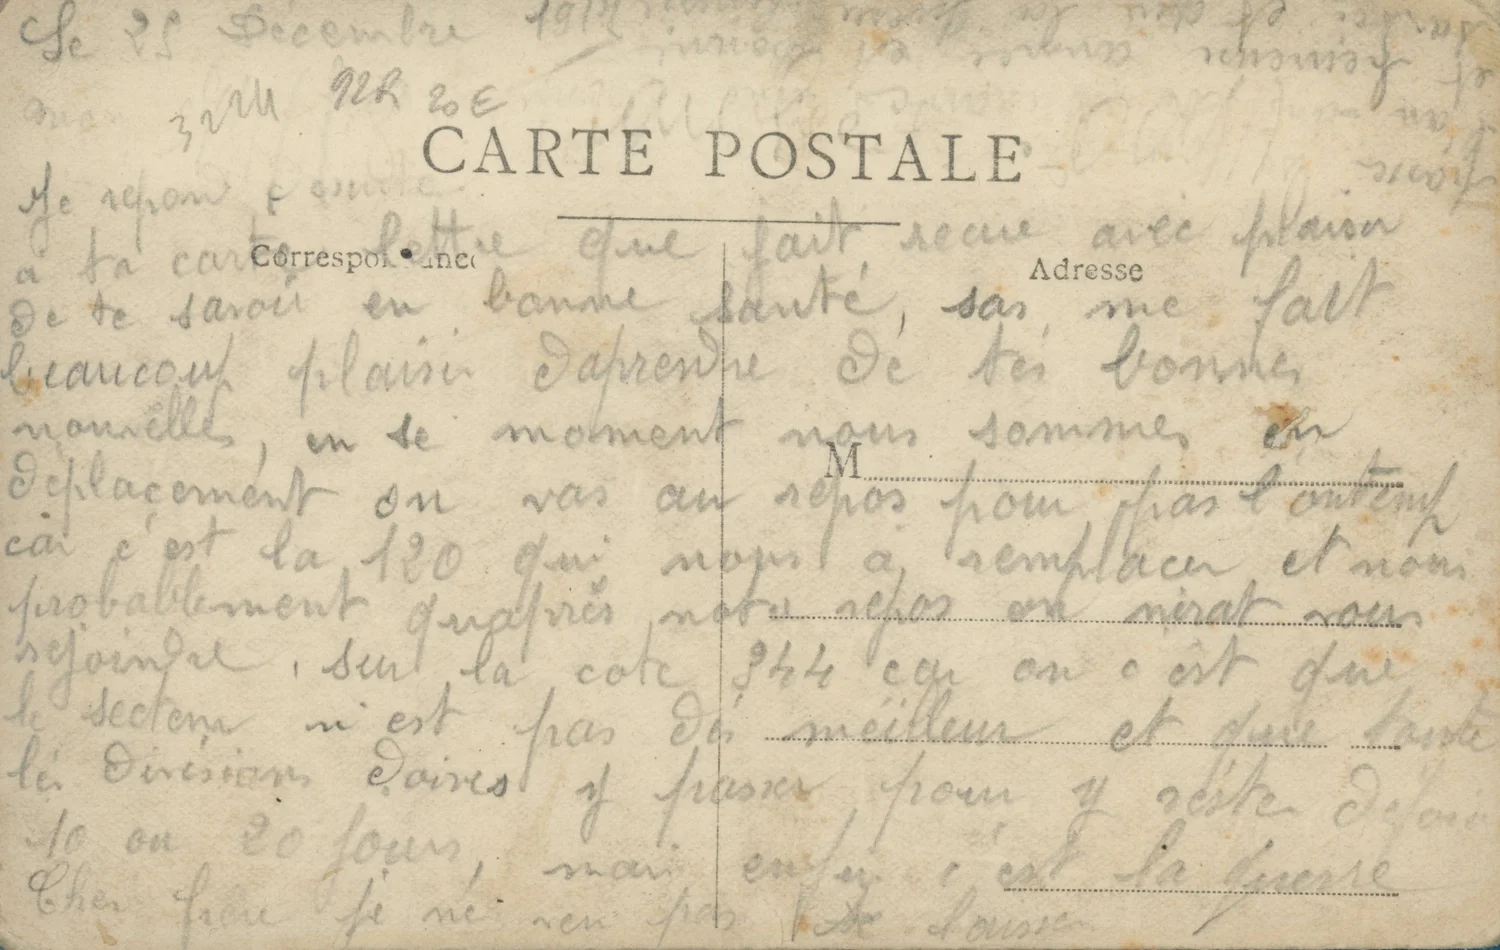 Le 25 Décembre 191
32M 92R 20E
CARTE POSTALE
Je repons
à ta carte lettre que fait recue avec plaisir
Correspondance Adresse
de te savoir en bonne santé, sas me fait
beaucoup plaisir daprendre de tes bonnes
nouvelles, en se moment nous sommes en
M
déplacement on vas au repos pour pas lontemp
car c'est la 120 qui nous a remplacer et nous
probablement quaprès notre repos on nirat vous
rejoindre, sur la cote 344 car on c'est que
le secteur n'est pas des meilleur et que toute
les divisions doives y passer pour y reste
10 ou 20 jours, mais enfin c'est la guerre
Cher frere je ne pas
santé et
et heureux
au
frère